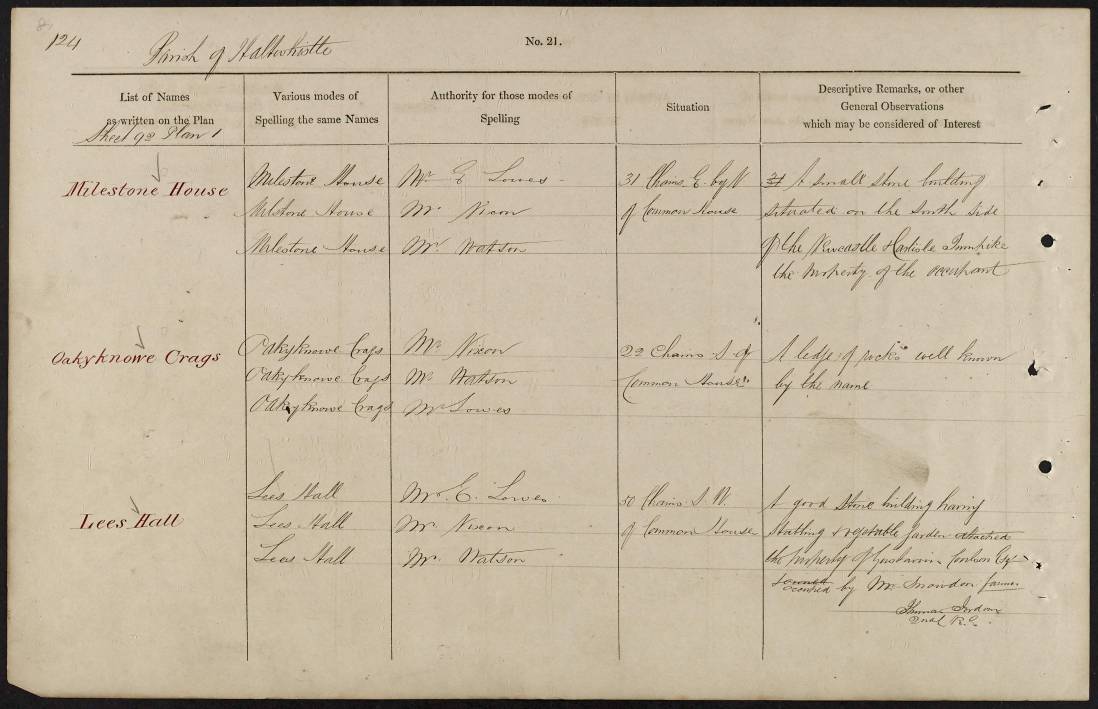 124
Parish of Haltwhistle
No. 21.
List of Names
as written on the Plan
Sheet 92 Plan 1
Various modes of
Spelling the same Names
Authority for those modes of
Spelling
Situation
Descriptive Remarks, or other
General Observations
which may be considered of Interest
Milestone House
Milestone House
Milstone House
Milestone House
Mr. E Lowes
Mr. Nixon
Mr. Watson
31 Chains E. by N
of Common House
A small stone building
situated on the South side
of the Newcastle & Carlisle Turnpike
the property of the occupant
Oakyknowe Crags
Oakyknowe Crags
Oakyknowe Crags
Oakyknowe Crags
Mr. Nixon
Mr. Watson
Mr Lowes
22 Chains S. of
Common House
A ledge of rocks well known
by the name
Lees Hall
Lees Hall
Lees Hall
Lees Hall
Mr. E. Lowes
Mr. Nixon
Mr. Watson
50 Chains S. W.
of Common House
A good Stone building having
Stabling & vegetable garden attached
the property of Gustavus Coulson Esqr
occupied by Mr. Snowdon farmer
Thomas Jordan
R.E.